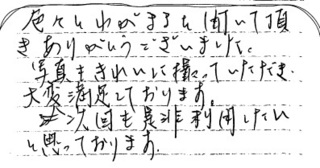 色々とわがままを聞いて頂
きありがとうございました。
写真もきれいに撮っていただき
大変満足しております。
次回も是非利用したい
と思っております。